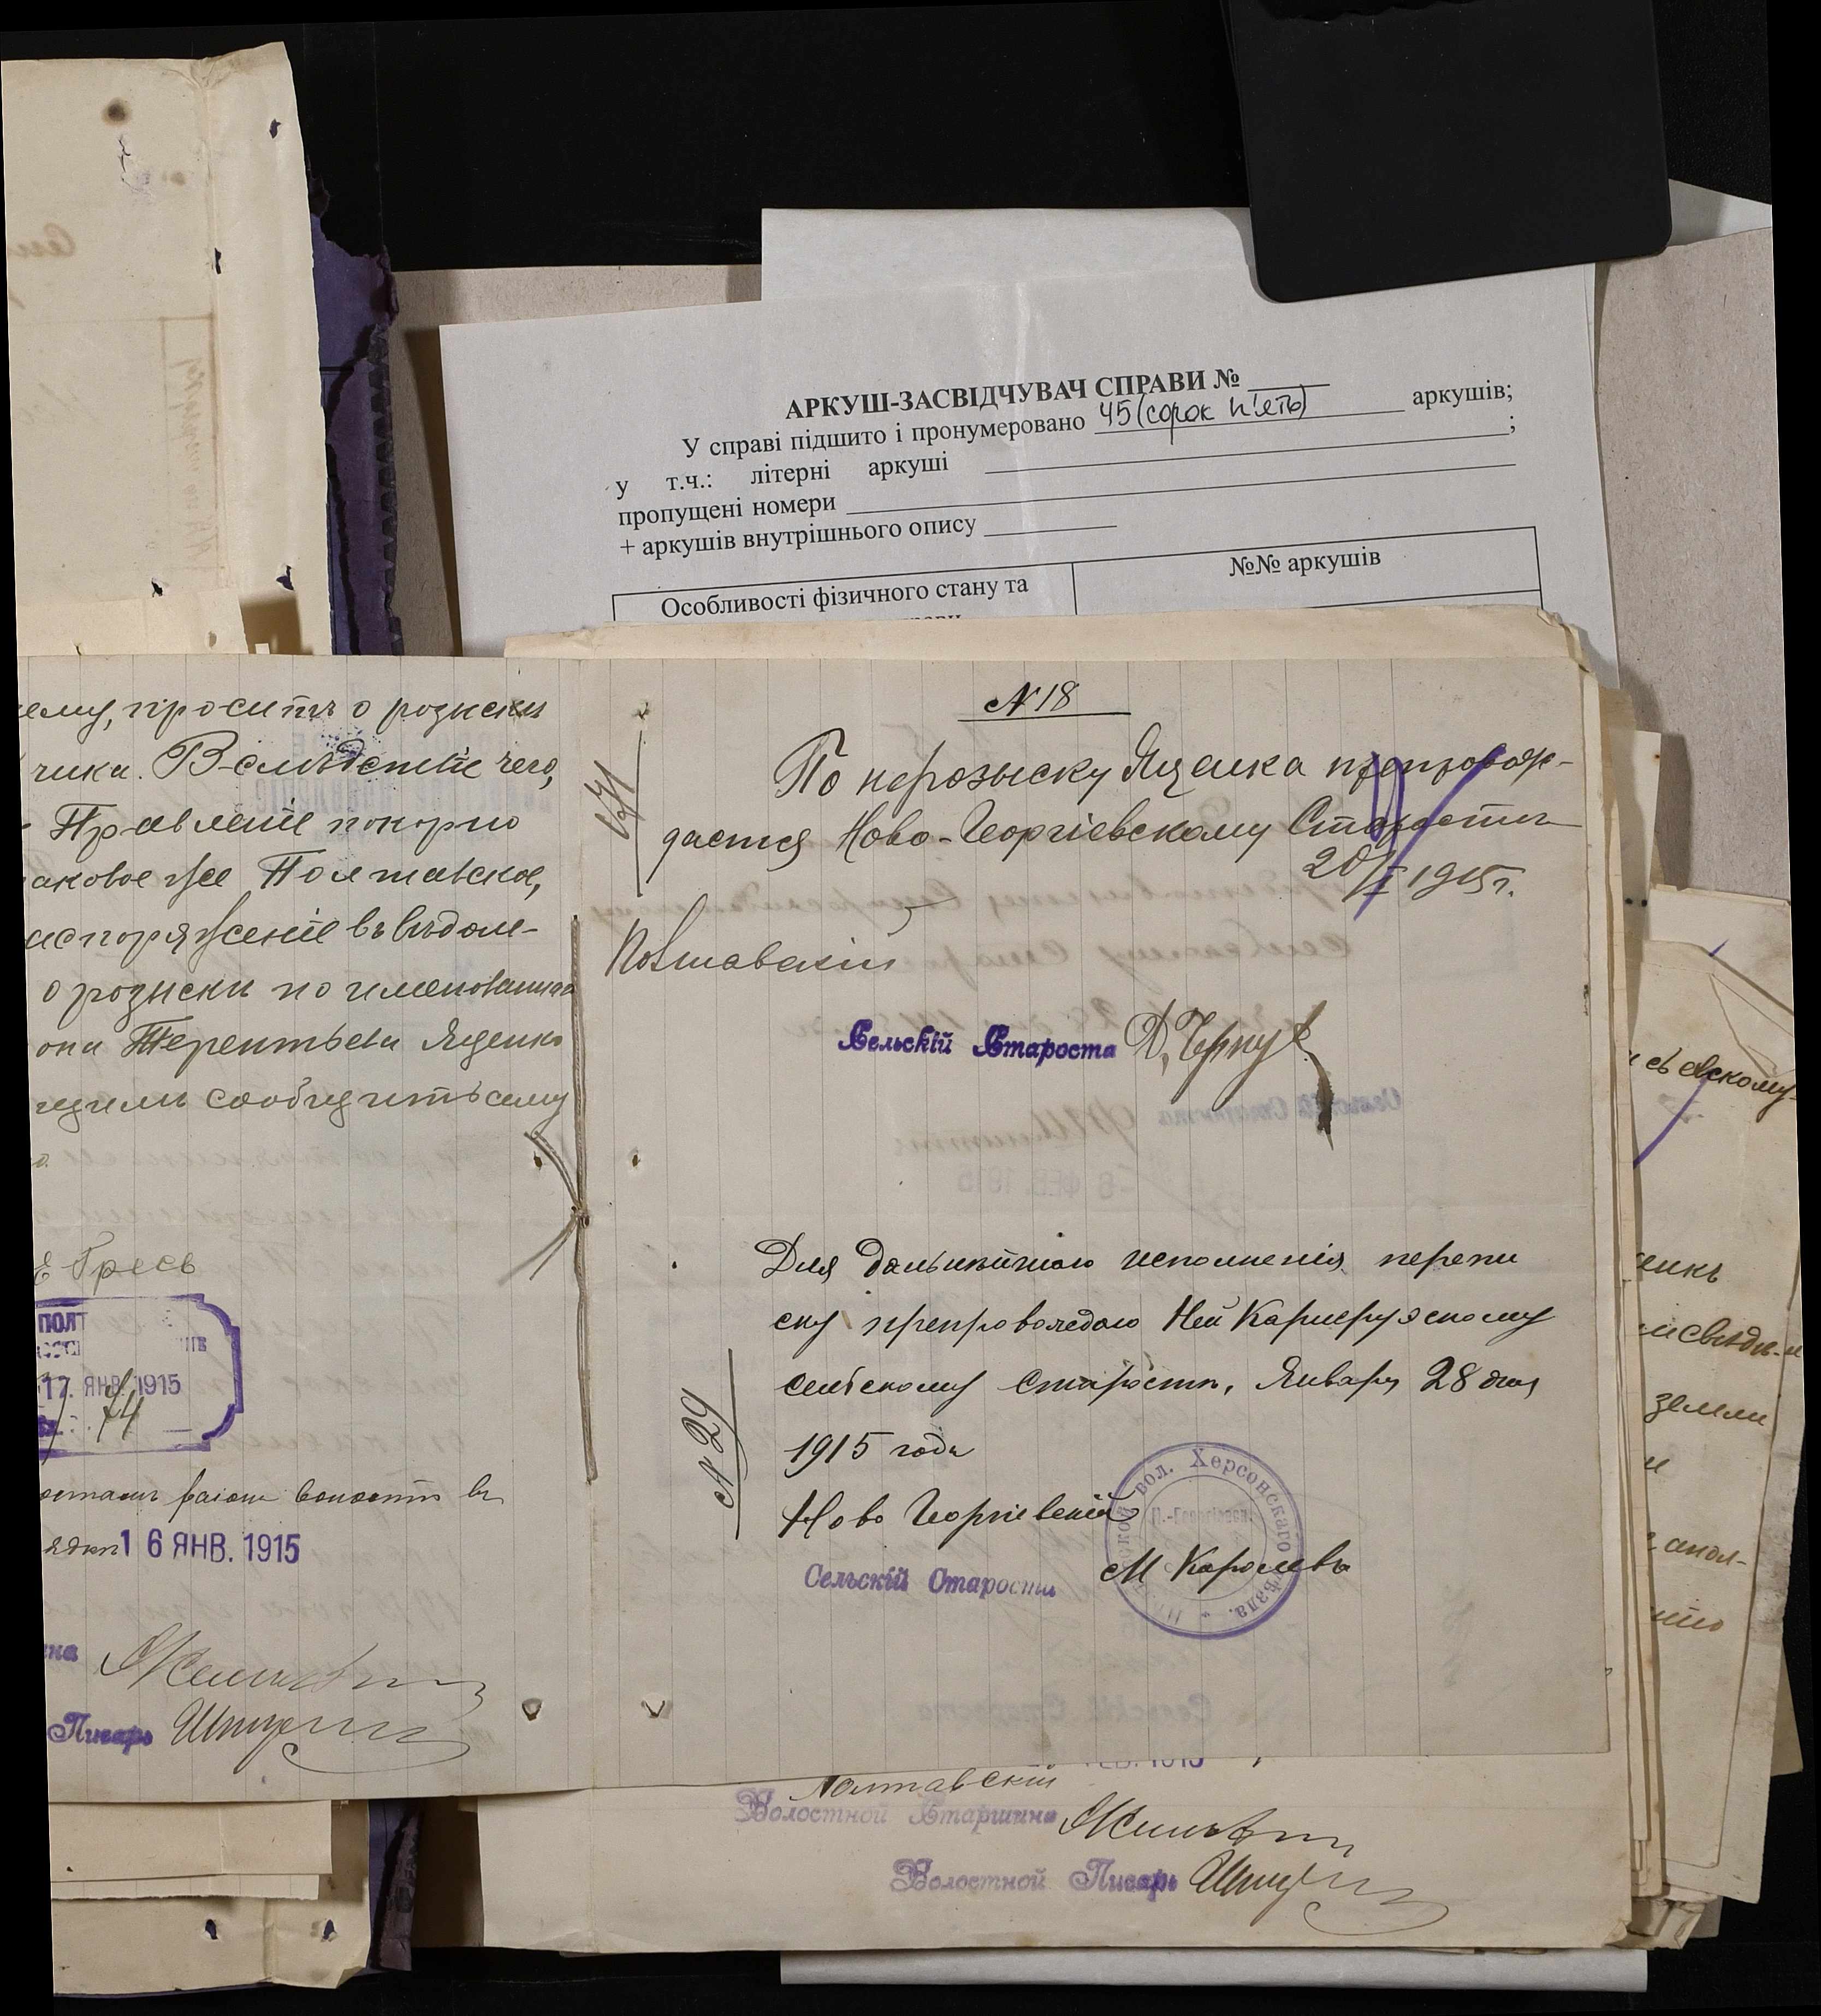 АРКУШ-ЗАСВІДЧУВАЧ СПРАВИ № ____
У справі підшито і пронумеровано 45 (сорок п'ять) аркушів;
у т.ч.: літерні аркуші ;
пропущені номери
+ аркушів внутрішнього опису
Особливості фізичного стану та
№№ аркушів
ему, просить о розиски
чика. Вслѣдствіе чего,
Правленіе покорно
аковое же Полтавское,
аспоряженіе въ вѣдом-
о розиски поименованнаго
она Терентьева Яценко
сообщить сему
Е Гресь
ПОЛТ
17. ЯНВ. 1915
74
волости въ
16 ЯНВ. 1915
на
Писарь
№ 18
По нерозыску Яценка препровож-
дается Ново-Георгіевскому Старостѣ
20/I 1915 г.
Полтавскій
Сельскій Староста Д. Чернух
Для дальнѣйшаго исполненія перепи
ску препровождаю Ней Карлсруэскому
сельскому старостѣ, Января 28 дня
1915 года
№ 29
Ново Георгіевскій
Сельскій Староста М Королевъ
вол. Херсонскаго уѣзда.
Н.-Георгіевскі
Полтавскій
Волостной Старшина
Волостной Писарь
евскому
енкъ
земли